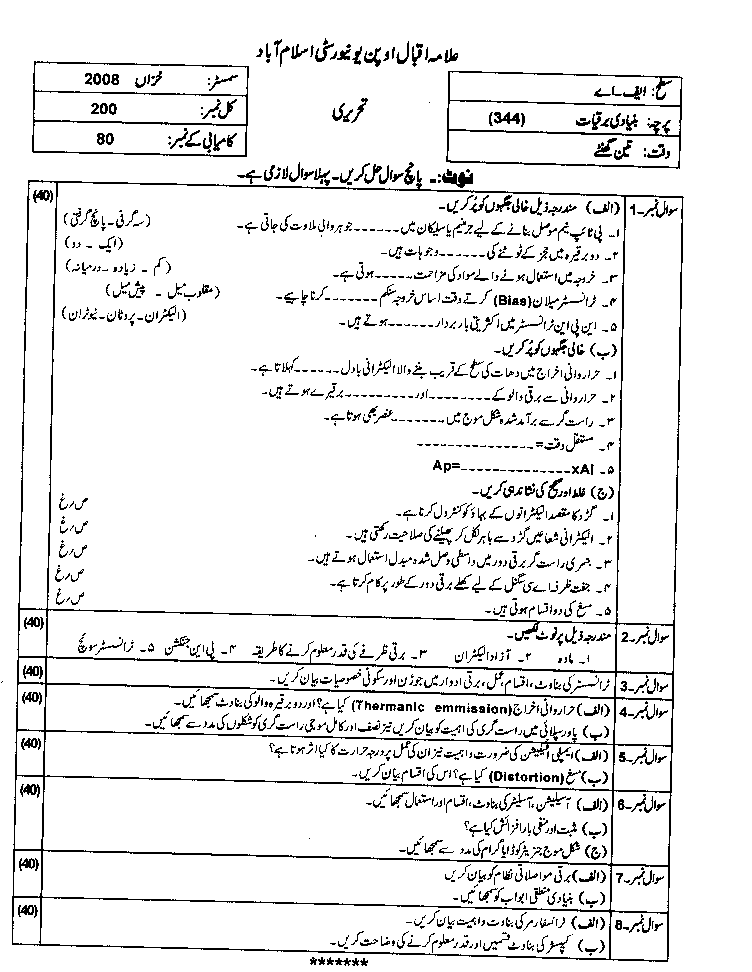 علامہ اقبال اوپن یونیورسٹی اسلام آباد
سطح: ایف۔اے
پرچہ: بنیادی برقیات (344)
وقت: تین گھنٹے
تحریری
سمسٹر: خزاں 2008
کل نمبر: 200
کامیابی کے نمبر: 80
نوٹ:۔ پانچ سوال حل کریں۔ پہلا سوال لازمی ہے۔
سوال نمبر۔1 (الف) مندرجہ ذیل خالی جگہوں کو پُر کریں۔ (40)
۱۔ پی ٹائپ نیم موصل بنانے کے لیے جرمنیم یا سلیکان میں ------ جوہر والی ملاوٹ کی جاتی ہے۔ (سہ گرفی۔ پانچ گرفتی)
۲۔ دو برقیرہ میں بجز کے ٹوٹنے کی ------ وجوہات ہیں۔ (ایک ۔ دو)
۳۔ خروجہ میں استعمال ہونے والے مواد کی مزاحمت ----- ہوتی ہے۔ (کم ۔ زیادہ ۔ درمیانہ)
۴۔ ٹرانسسٹر میلان (Bias) کرتے وقت اساس خروجہ سنگم ------- کرنا چاہیے۔ (مقلوب میل ۔ پیش میل)
۵۔ این پی این ٹرانسسٹر میں اکثریتی بار بردار ------ ہوتے ہیں۔ (الیکٹران۔ پروٹان۔ نیوٹران)
(ب) خالی جگہوں کو پُر کریں۔
۱۔ حراروانی اخراج میں دھات کی سطح کے قریب بننے والا الیکٹرانی بادل ------ کہلاتا ہے۔
۲۔ حراروانی سے برقی والو کے -------- اور --------- برقیرے ہوتے ہیں۔
۳۔ راست گر سے برآمد شدہ شکل موج میں ------- عنصر بھی ہوتا ہے۔
۴۔ مستقل وقت = ---------------
۵۔ Ap=--------------xAI
(ج) غلط اور صحیح کی نشاندہی کریں۔
۱۔ گرڈ کا مقصد الیکٹرانوں کے بہاؤ کو کنٹرول کرنا ہے۔ ص/غ
۲۔ الیکٹرانی شعاعیں گرڈ سے باہر نکل کر پھیلنے کی صلاحیت رکھتی ہیں۔ ص/غ
۳۔ جسری راست گر برقی دور میں واسطی وصل شدہ مبدل استعمال ہوتے ہیں۔ ص/غ
۴۔ جفت ظرفہ اے سی سگنل کے لیے کھلے برقی دور کے طور پر کام کرتا ہے۔ ص/غ
۵۔ مسخ کی دو اقسام ہوتی ہیں۔ ص/غ
سوال نمبر۔2 مندرجہ ذیل پر نوٹ لکھیں۔ (40)
۱۔ مادہ ۲۔ آزاد الیکٹران ۳۔ برقی ظرفے کی قدر معلوم کرنے کا طریقہ ۴۔ پی این جنکشن ۵۔ ٹرانسسٹر سوئچ
سوال نمبر۔3 ٹرانسسٹر کی بناوٹ، اقسام، عمل، برقی ادوار میں جوڑنا اور سکونی خصوصیات بیان کریں۔ (40)
سوال نمبر۔4 (الف) حراروانی اخراج (Thermanic emmission) کیا ہے؟ اور دو برقیرہ والو کی بناوٹ سمجھائیں۔ (40)
(ب) پاور سپلائی میں راست گری کی اہمیت کو بیان کریں نیز نصف اور کامل موجی راست گری کو شکلوں کی مدد سے سمجھائیں۔
سوال نمبر۔5 (الف) ایمپلی فیکیشن کی ضرورت و اہمیت نیز ان کی عمل پر درجہ حرارت کا کیا اثر ہوتا ہے؟ (40)
(ب) مسخ (Distortion) کیا ہے؟ اس کی اقسام بیان کریں۔
سوال نمبر۔6 (الف) آسیلیشن، آسلیٹر کی بناوٹ، اقسام اور استعمال سمجھائیں۔ (40)
(ب) مثبت اور منفی بار افزائش کیا ہے؟
(ج) شکل موج جنریٹر کو ڈایاگرام کی مدد سے سمجھائیں۔
سوال نمبر۔7 (الف) برقی مواصلاتی نظام کو بیان کریں (40)
(ب) بنیادی منطقی ابواب کو سمجھائیں۔
سوال نمبر۔8 (الف) ٹرانسفارمر کی بناوٹ و اہمیت بیان کریں۔ (40)
(ب) کپیسٹر کی بناوٹ قسمیں اور قدر معلوم کرنے کی وضاحت کریں۔
*******